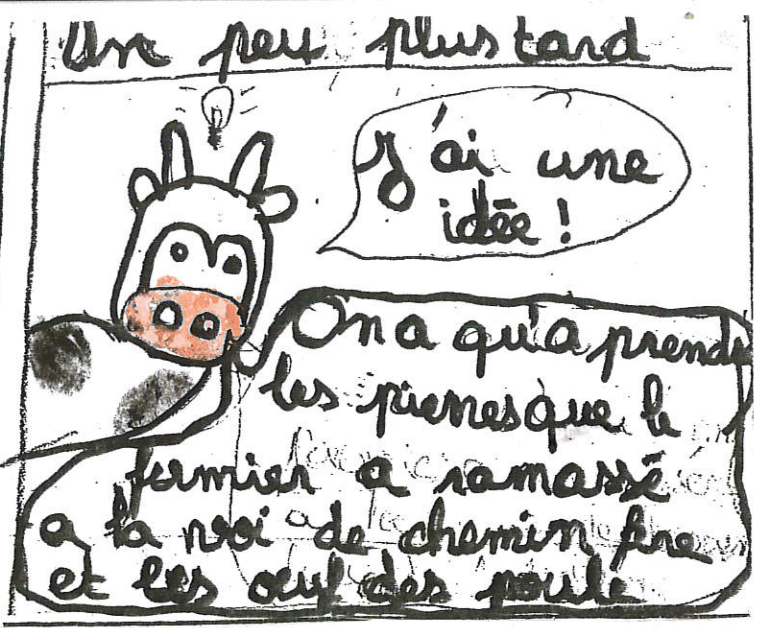 Un peu plus tard
J'ai une
idée !
On a qu'a prendre
les pierres que le
fermier a ramassé
a la voi de chemin fere
et les œuf des poule